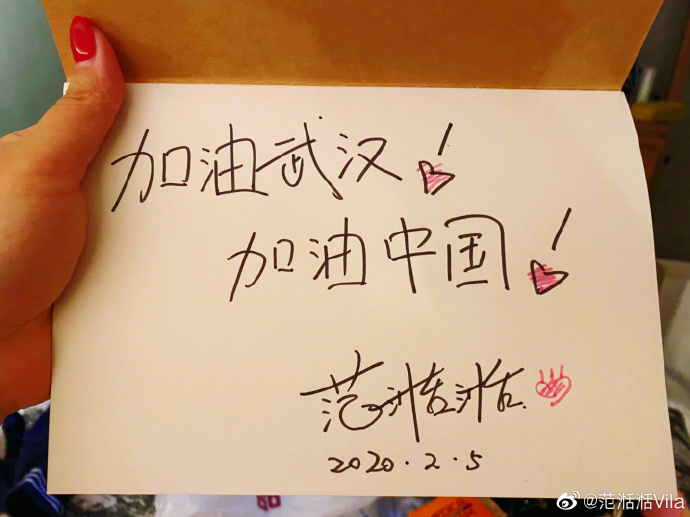 加油武汉!
加油中国!
范湉湉
2020.2.5
@范湉湉Vila